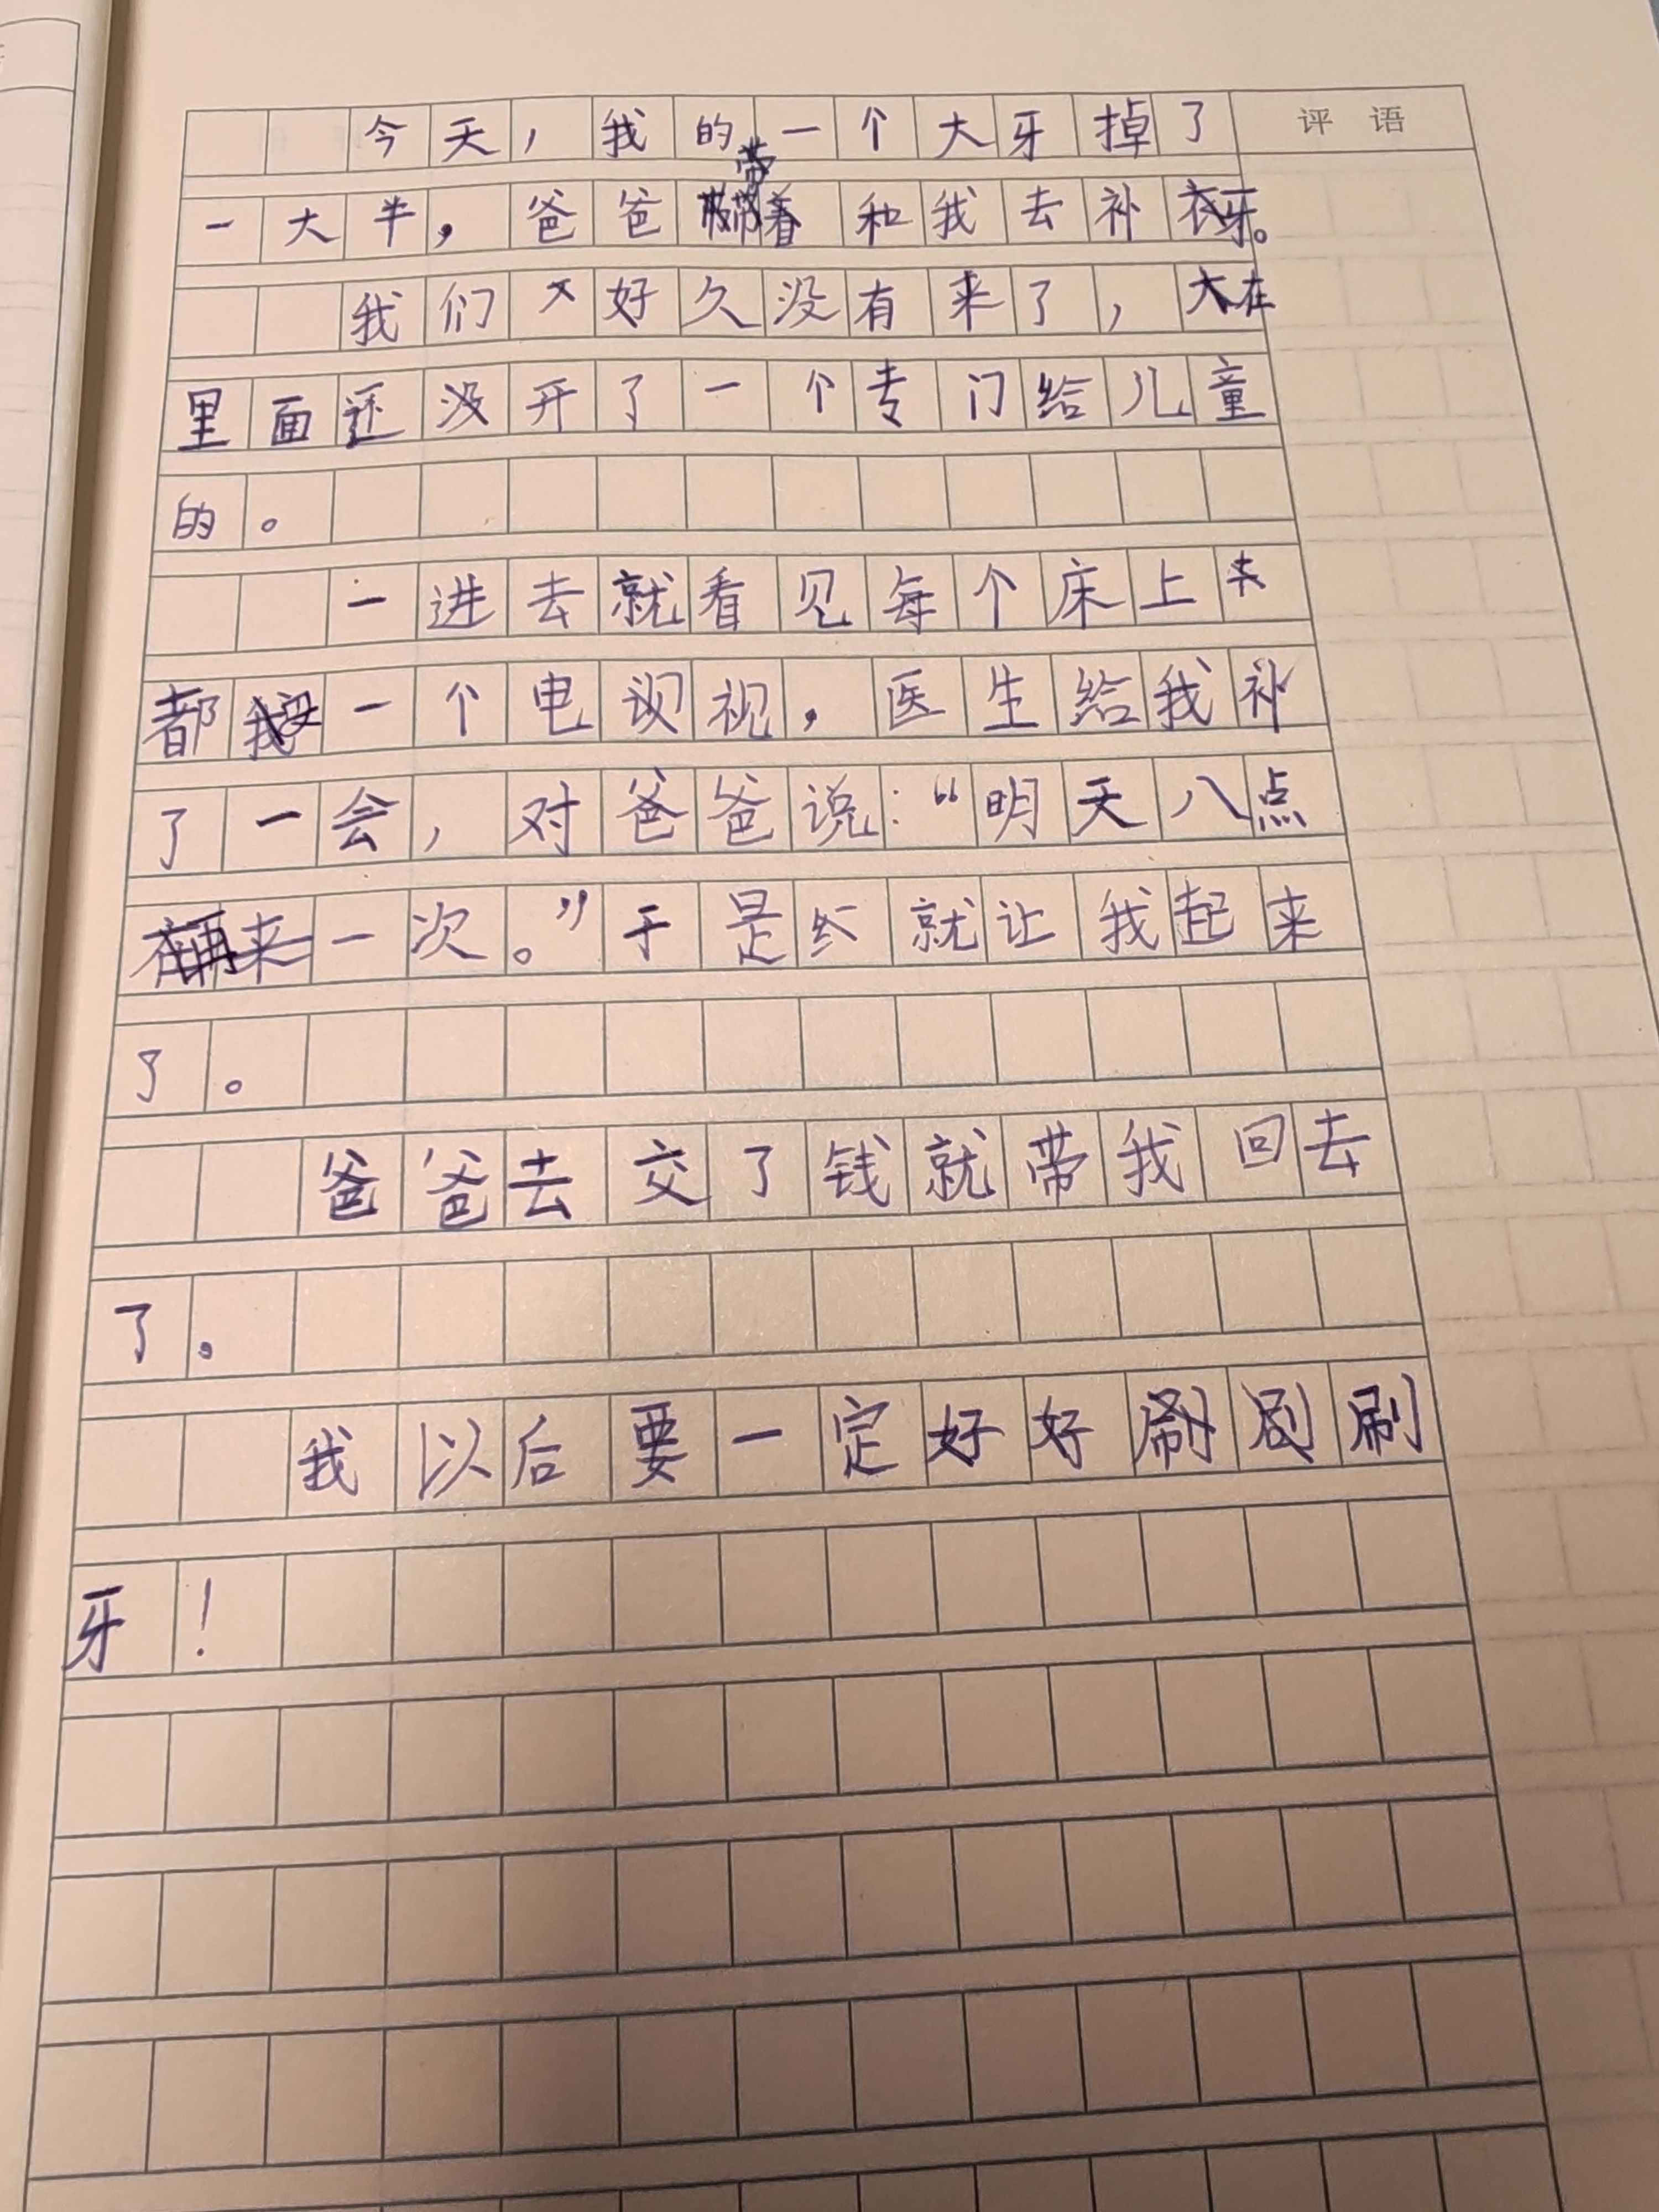 评语
今天，我的一个大牙掉了
一大半，爸爸带着和我去补牙。
我们好久没有来了，在
里面还没开了一个专门给儿童
的。
一进去就看见每个床上
都一个电视，医生给我补
了一会，对爸爸说：“明天八点
再来一次。”于是就让我起来
了。
爸爸去交了钱就带我回去
了。
我以后要一定好好刷
牙！